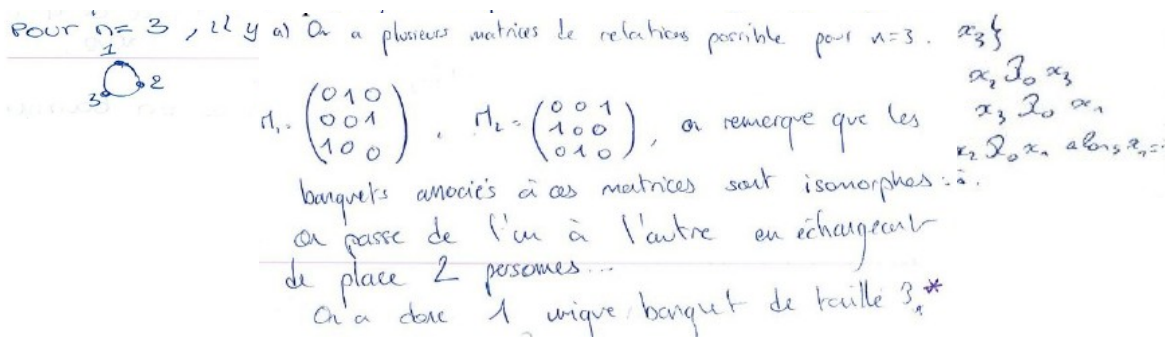 Pour n = 3, il y a) On a plusieurs matrices de relations possible pour n=3. x₃}
1
2
3
x₂ R₀ x₃
x₃ R₀ x₁
M₁ = (0 1 0
0 0 1
1 0 0), M₂ = (0 0 1
1 0 0
0 1 0), on remarque que les
x₂ R₀ x₁ alors x₁ =
banquets associés à ces matrices sont isomorphes :
on passe de l'un à l'autre en échangeant
de place 2 personnes...
On a donc 1 unique banquet de taille 3.*